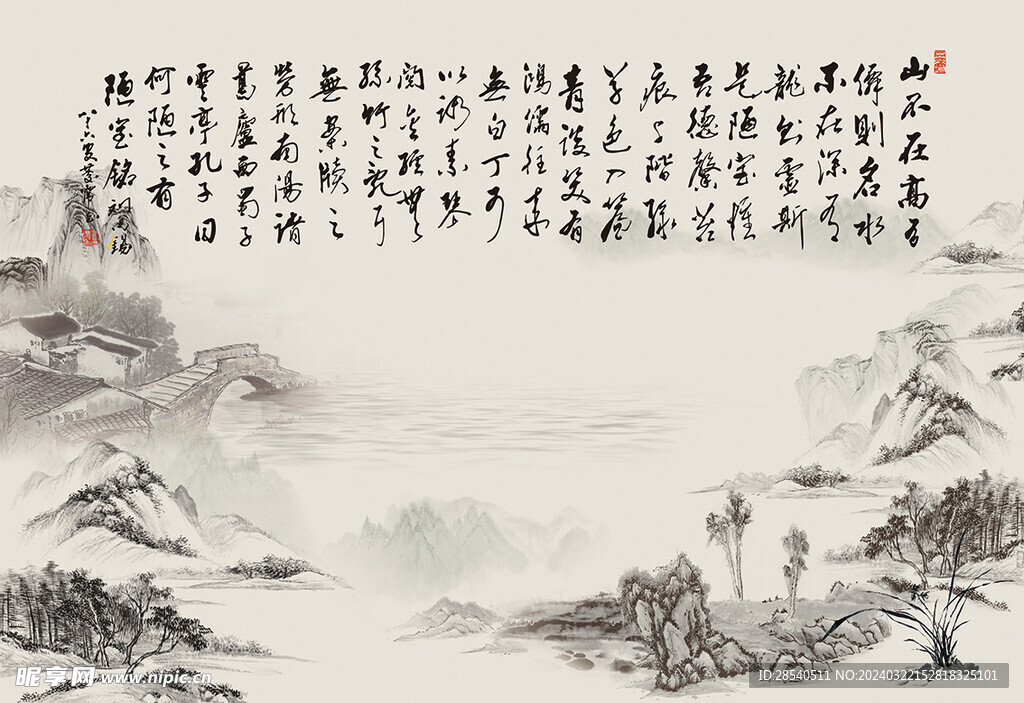 山不在高有
僊則名水
不在深有
龍則靈斯
是陋室惟
吾德馨苔
痕上階綠
草色入簾
青談笑有
鴻儒往來
無白丁可
以調素琴
閱金經無
絲竹之亂耳
無案牘之
勞形南陽諸
葛廬西蜀子
雲亭孔子曰
何陋之有
陋室銘 劉禹錫
昵享网 www.nipic.cn
ID:28540511 NO:20240322152818325101